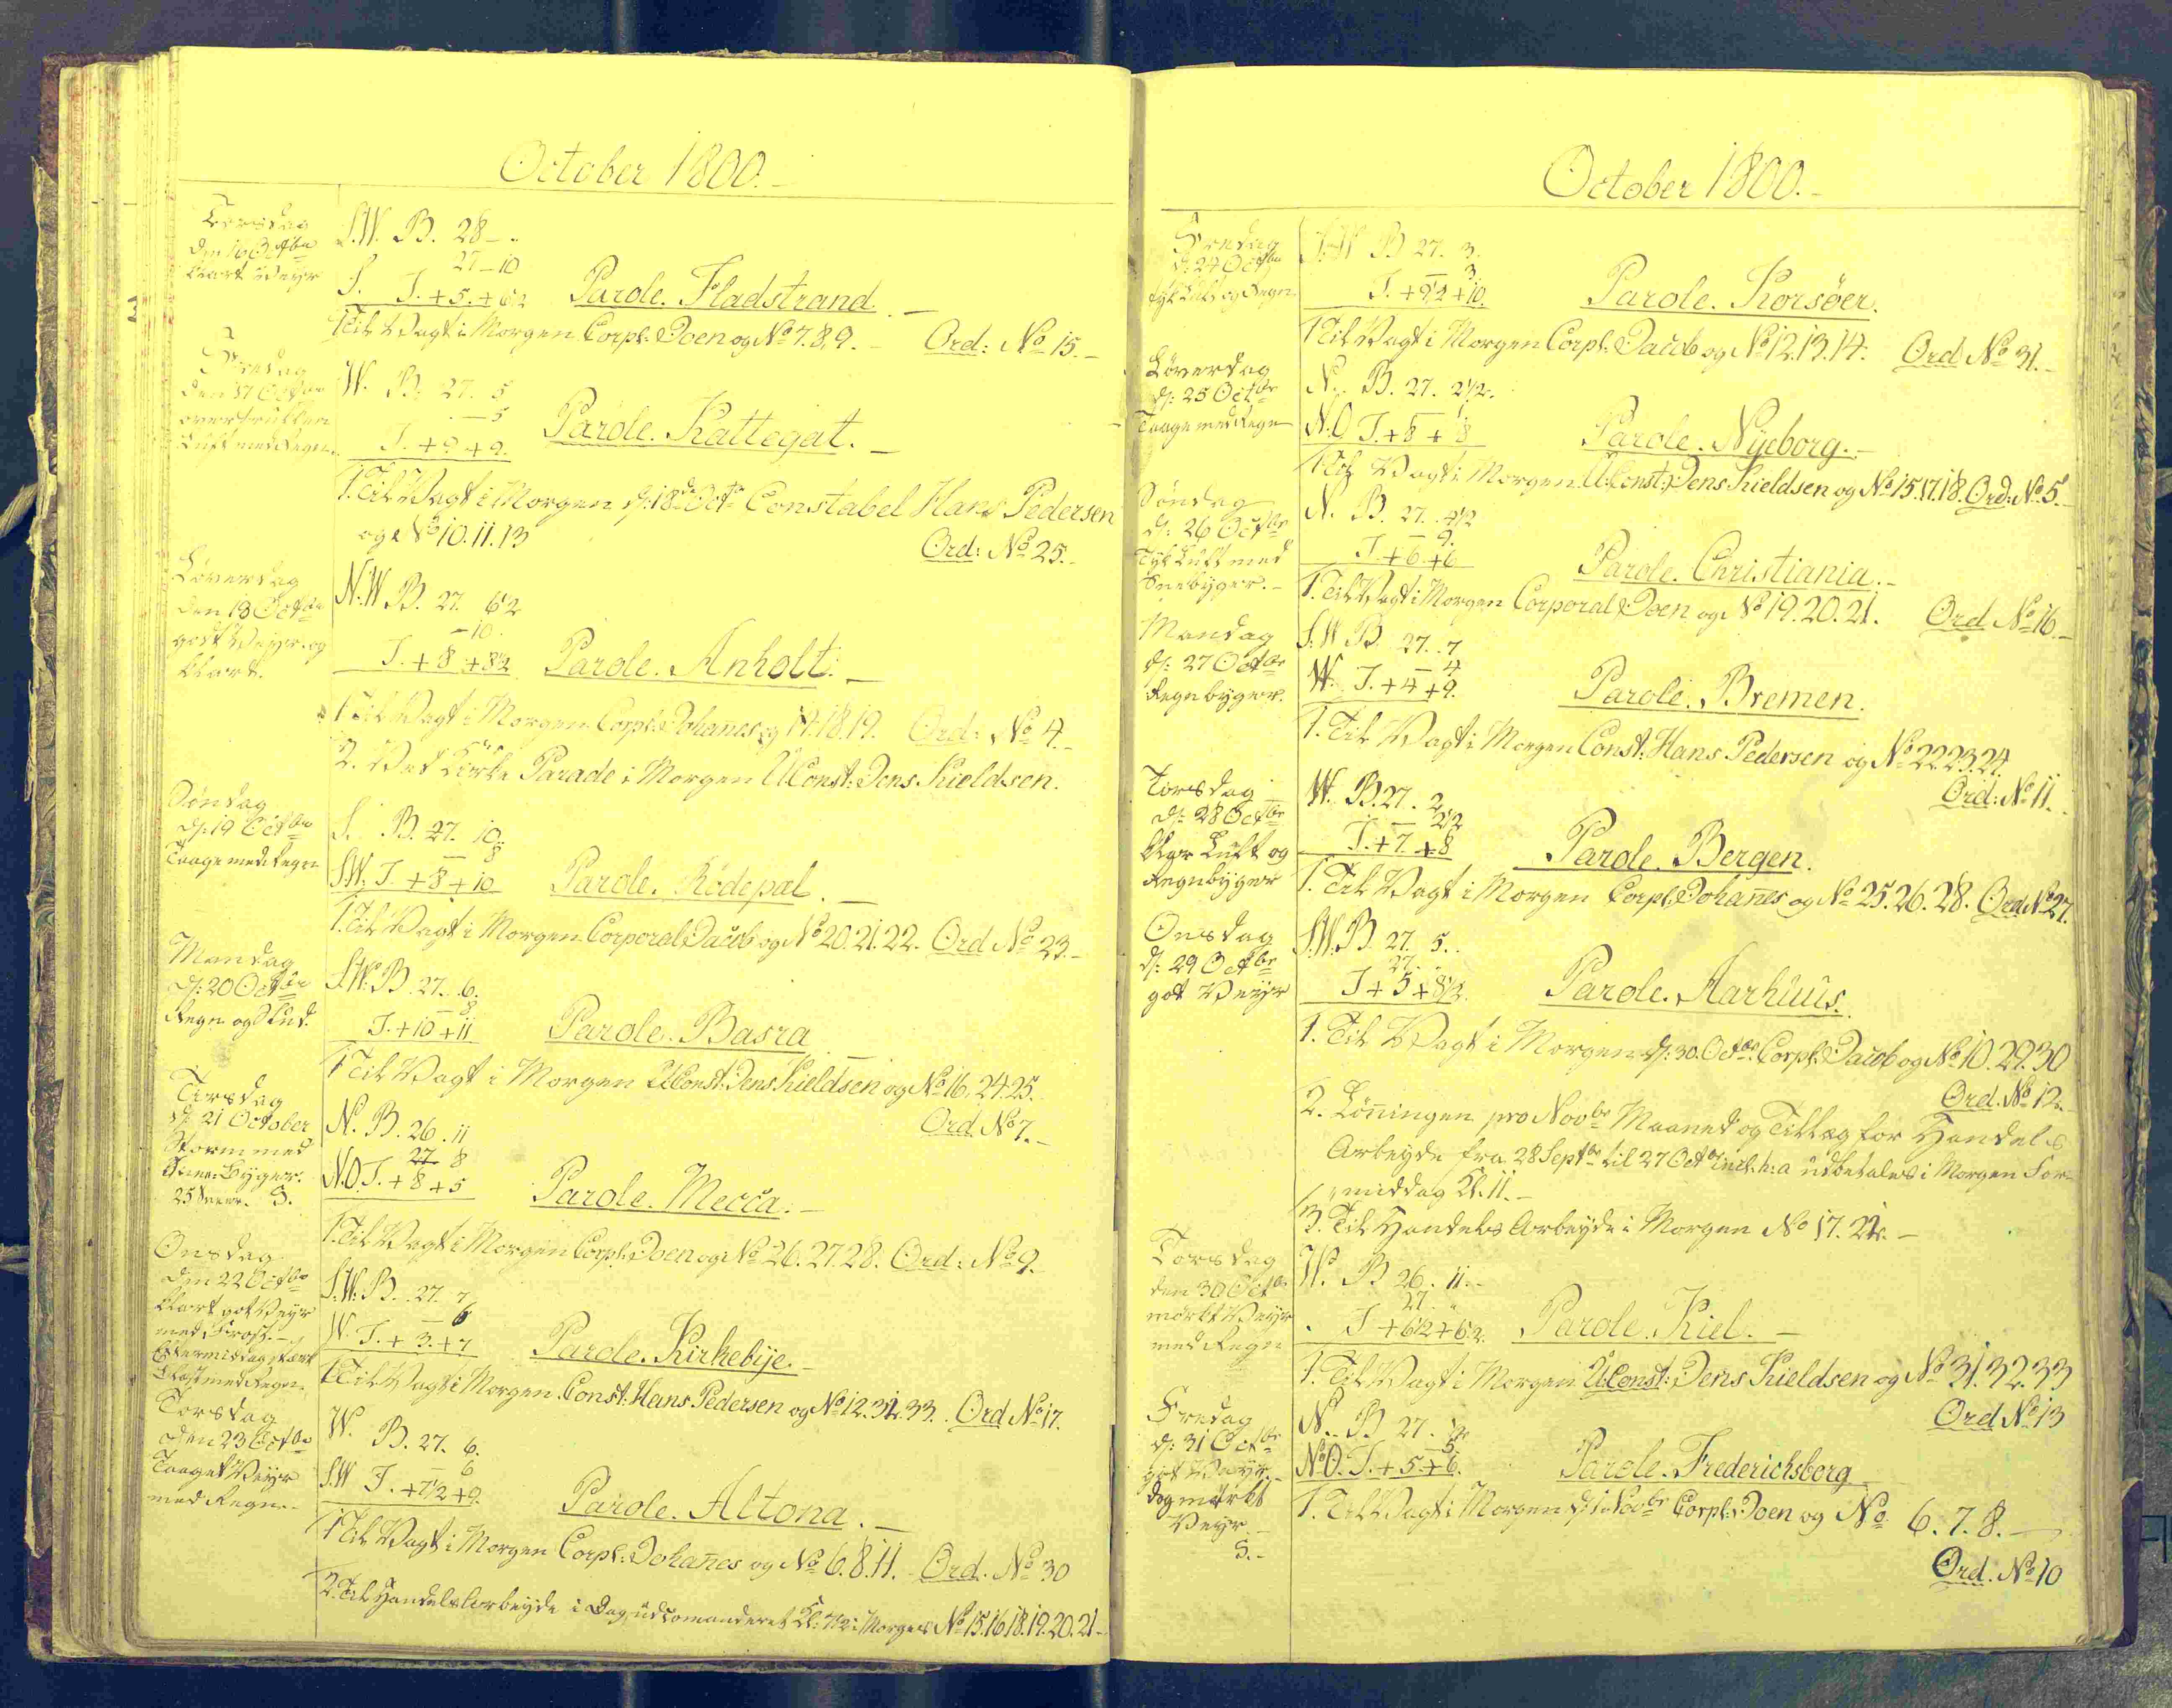 October 1800.-
Torsdag
den 16 Octbr
klart Veyr
S.W. B. 28-.
27-10
S. T. +5. +6½ Parole. Fladstrand.-
1. Til Vagt i Morgen Corpl: Joen og No 7.8.9.- Ord: No 15.-
Fredag
den 17 Octbr
overtrukken
Luft med Regn.
W. B. 27. 5
-5
T. +9 +9. Parole. Kattegat.-
1. Til Vagt i Morgen d: 18de Octr Constabel Hans Pedersen
og No 10.11.13 Ord: No 25.-
Löverdag
den 18 Octbr
godt Veyr og
klart.
N.W B. 27. 6½
-10.
T. +8 +8½ Parole. Anholt.-
1 Til Vagt i Morgen Corpl: Johanes og 17.18.19. Ord: No 4.-
2. Ved Kirke Parade i Morgen UConst: Jens Kieldsen.
Söndag
d: 19 Octbr
Taage med Regn
S. B. 27. 10.
- 8
S.W. T. +8 +10 Parole. Rödepæl.-
1. Til Vagt i Morgen Corporal Jacob og No 20.21.22. Ord No 23.-
Mandag
d: 20 Octbr
Regn og Slud.
S.W. B. 27. 6.
- 8
T. +10 +11 Parole. Basra.-
1 Til Vagt i Morgen UConst: Jens Kieldsen og No 16.24.25.
Ord No 7.-
Tirsdag
d: 21 October
Storm med
Snee-Byger.
25 S.
N. B. 26. 11
27 8
N.O. T. +8 +5 Parole. Mecca.-
1. Til Vagt i Morgen Corpl: Joen og No 26.27.28. Ord: No 9.
Onsdag
den 22 Octbr
klart got Veyr
med Frost.-
Eftermiddag stærk
Blæst med Regn.
S.W. B. 27. 7
- 6
W. T. +3. +7 Parole. Kirkebÿe.-
1 Til Vagt i Morgen Const: Hans Pedersen og No 12.31.33. Ord No 17.
Torsdag
den 23 Octbr
Taaget Veyr
med Regn.-
W. B. 27. 6.
- 6
S.W T. +7½ +9. Parole. Altona.-
1 Til Vagt i Morgen Corpl: Johanes og No 6.8.11.- Ord. No 30
2. Til Handels Arbeyde i Dag udcomanderet Kl: 7½ i Morges No 15.16.18.19.20.21-
October 1800.-
Fredag
d: 24 Octbr
tyk Luft og Regn.
S.W B 27. 3.
- 3.
T. +9½ +10. Parole. Korsöer.
1 Til Vagt i Morgen Corpl: Jacob og No 12.13.14. Ord No 31.-
Löverdag
d: 25 Octbr
Taage med Regn
N. B. 27. 2½.
N.O T. +8 + 8 Parole. Nÿeborg.-
1 Til Vagt i Morgen U:Const: Jens Kieldsen og No 15.17.18. Ord: No 5.-
Söndag
d: 26 Octbr
Tyk Luft med
Sneebyger.-
N. B. 27. 4½
- 9.
T. +6 +6 Parole. Christiania.-
1. Til Vagt i Morgen Corporal Joen og No 19.20.21. Ord No 16.-
Mandag
d: 27 Octbr
Regnbyger.
S.W B. 27. 7
- 4
W. T. +4 +9. Parole. Bremen.
1. Til Vagt i Morgen Const: Hans Pedersen og No 22.23.24.
Ord: No 11.
Torsdag
d: 28 Octbr
klar Luft og
Regnbyger
W. B. 27. 2
- 2½
T. +7. +8 Parole. Bergen.
1. Til Vagt i Morgen Corpl: Johañes og No 25.26.28. Ord No 27.
Onsdag
d: 29 Octbr
got Veyr
S.W. B. 27. 5.
27.
T +5 +8½. Parole. Aarhuus.
1. Til Vagt i Morgen d: 30. Octbr Corpl: Jacob og No 10.29.30
Ord. No 12.
2. Löningen pro Novbr Maaned og Tillæg for Handels
Arbeyde fra 28 Septbr til 27 Octbr incl: h: a udbetales i Morgen For-
middag Kl. 11.-
3. Til Handels Arbeyde i Morgen No 17. 21.-
Torsdag
den 30 Octbr
mörkt Veyr
med Regn
W. B 26. 11.-
27. "
T +6½ +6½. Parole. Kiel.-
1. Til Vagt i Morgen U:Const: Jens Kieldsen og No 31.32.33
Ord No 13
Fredag
d: 31 Octbr
got Veyr.-
dog mörkt
Veyr.-
S.-
N. B 27. ½
- 5.
N.O. T. +5. +6. Parole. Frederichsberg
1. Til Vagt i Morgen d: 1 Novbr Corpl: Joen og No 6. 7. 8.-
Ord. No 10